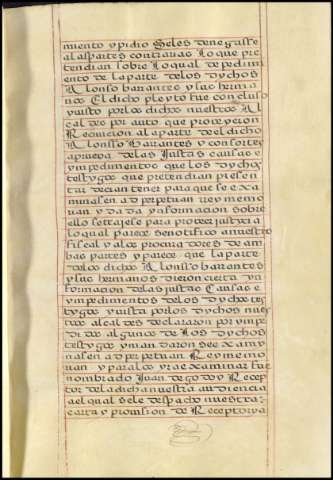 miento y pidio Seles denegasse
alas partes contrarias Lo que pre
tendian sobre Lo qual de pedim
ento de la parte de los dychos
Alonso barantes y sus herma
nos El dicho pleyto fue concluso
y visto por los dichos nuestros Al
caldes por auto que proveyeron
Recivieron a la parte de el dicho
Alonsso Barantes y consortes
a prueva de las Justas causas e
ympedimentos que los dychos
testygos que pretendian presen
tar decian tener para que se exa
minassen ad perpetuan rrey memo
rian y dada ynformacion sobre
ello se traxese para proveer justicia
lo qual parece se notifico a nuestro
fiscal y a los procuradores de am
bas partes y parece que la parte
de los dichos Alonsso barantes
y sus hermanos dieron cierta yn
formacion de las justas Causas e
ympedimentos de los dychos tes
tygos y vista por los dychos nues
tros alcaldes declararon por ympe
didos algunos de Los dychos
testygos y mandaron se examy
nasen ad perpetuan Rey memo
rian y para los yr a examinar fue
nombrado Juan de godoy Recep
tor de la dicha nuestra audiencia
a el qual se le despacho nuestra
carta y provision de Receptorya